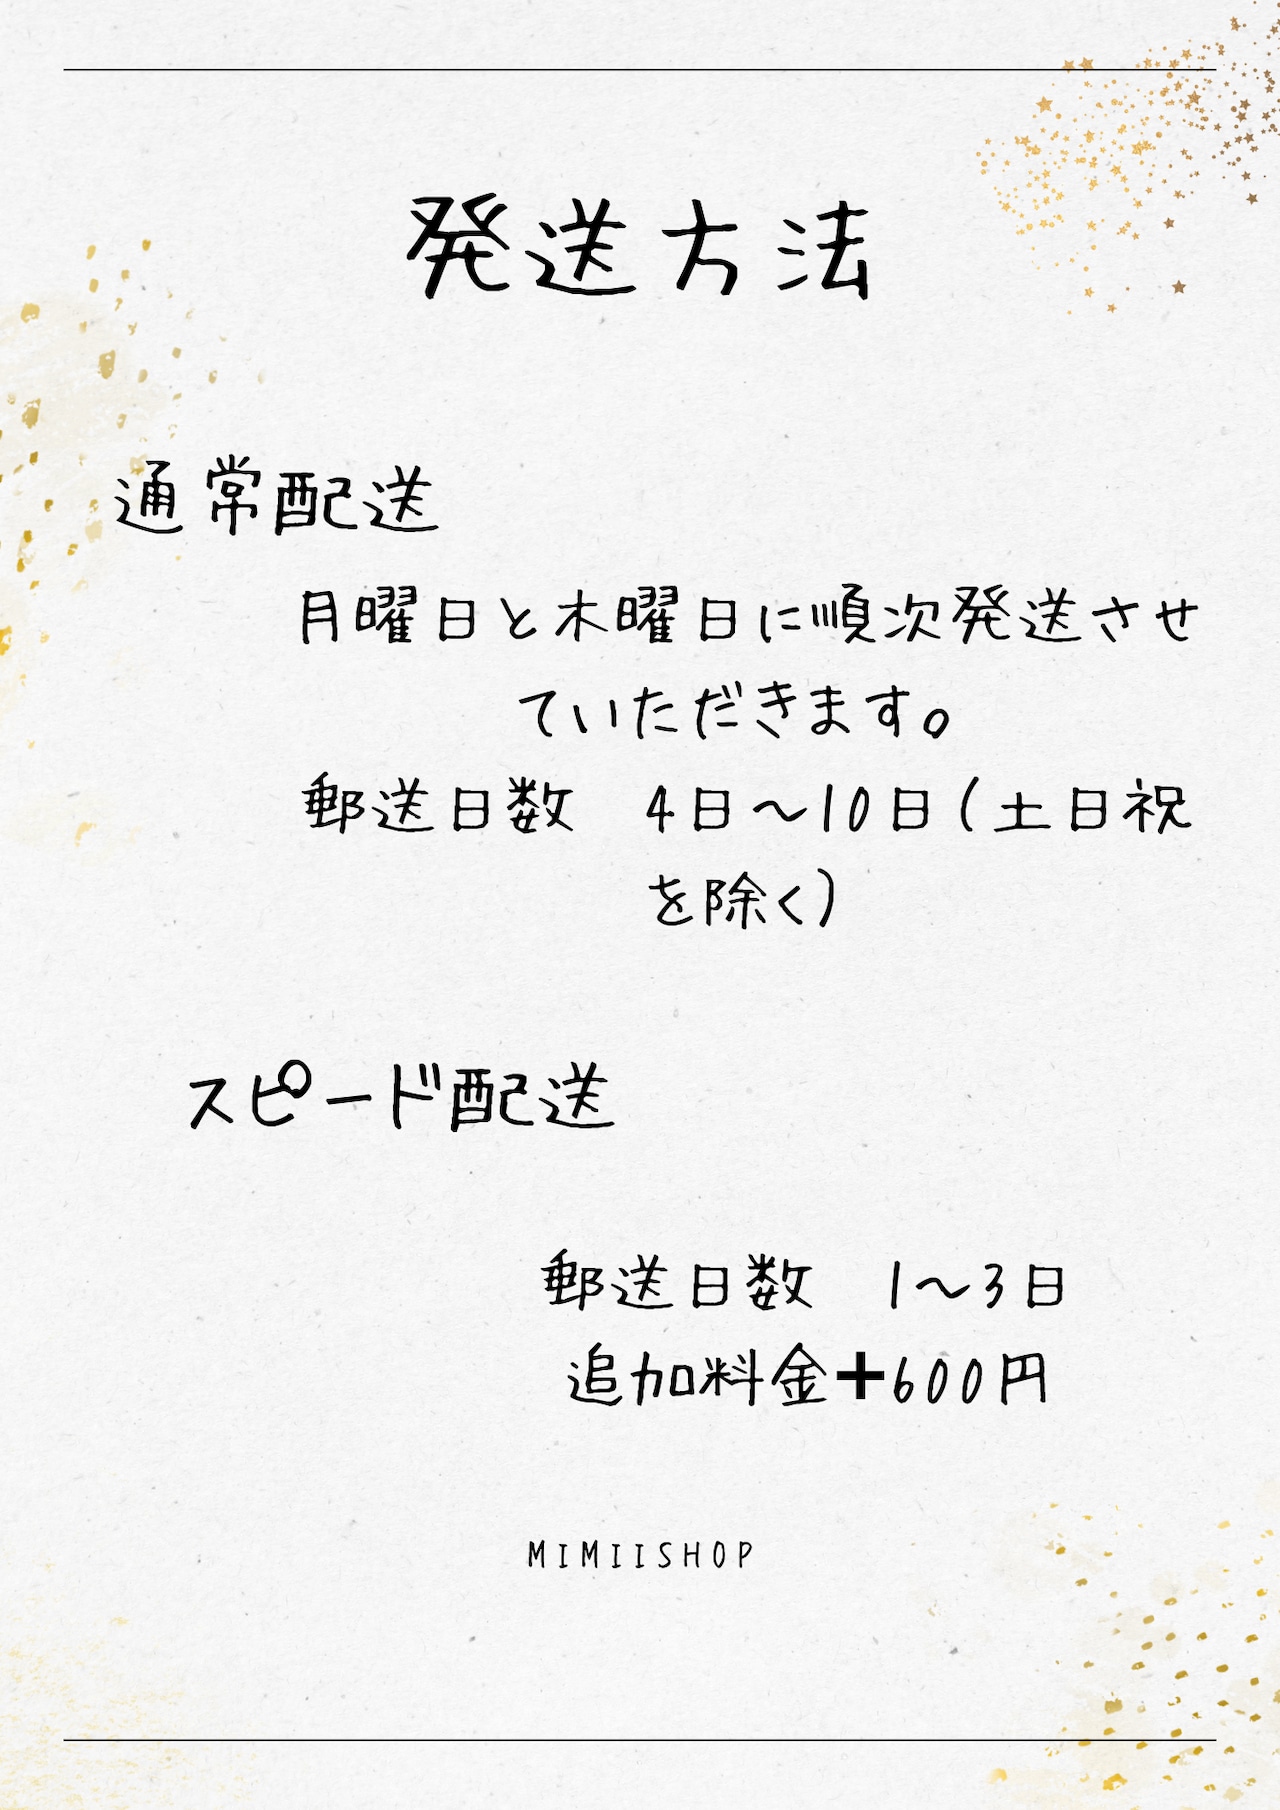 発送方法
通常配送
月曜日と木曜日に順次発送させ
ていただきます。
郵送日数　4日〜10日(土日祝
を除く)
スピード配送
郵送日数　1〜3日
追加料金➕600円
MIMIISHOP